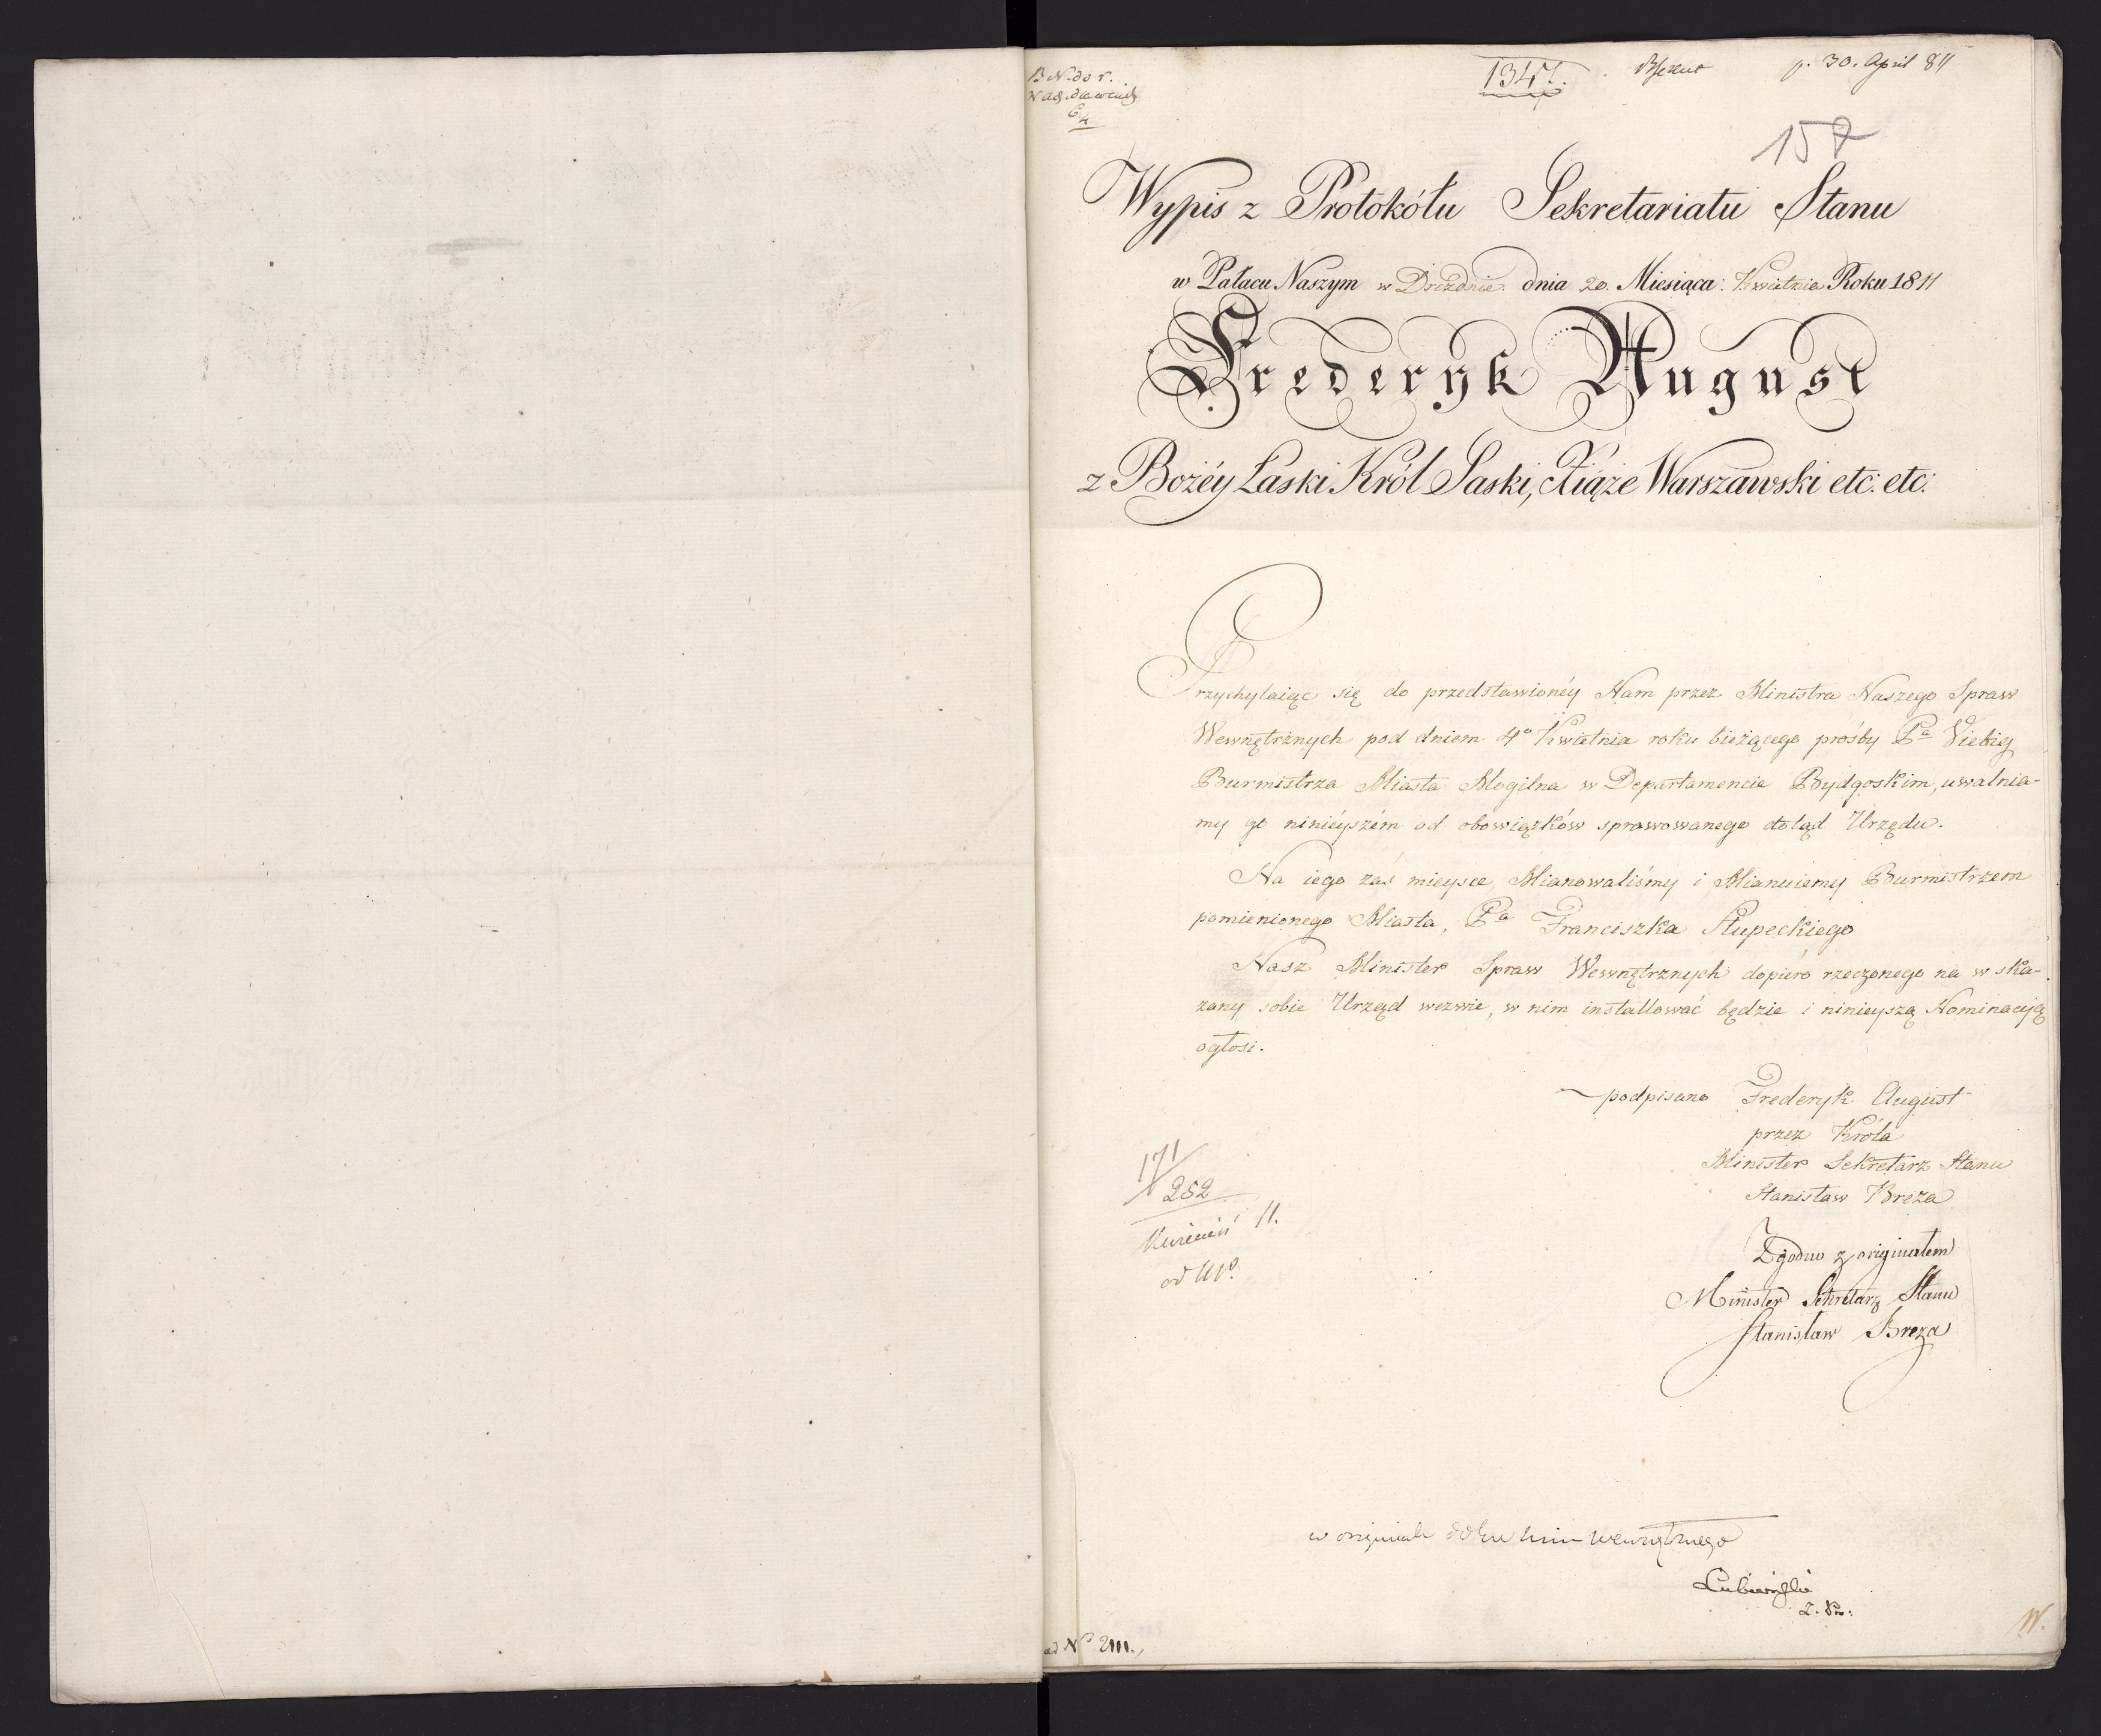 1347.
p. 30. April 811
157
Wypis z Protokółu Sekretariatu Stanu
w Pałacu Naszym w Dreźdnie dnia 20. Miesiąca: Kwietnia Roku 1811
Frederyk August
z Bożéy Łaski Król Saski, Xiąże Warszawski etc: etc:
Przychylaiąc się do przedstawionéy Nam przez Ministra Naszego Spraw
Wewnętrznych pod dniem 4º Kwietnia roku bieżącego prośby Pa Viebig
Burmistrza Miasta Mogilna w Departamencie Bydgoskim, uwalnia-
my go ninieyszém od obowiązków sprawowanego dotąd Urzędu.
Na iego zaś mieysce Mianowaliśmy i Mianuiemy Burmistrzem
pomienionego Miasta, Pa Franciszka Słupeckiego
Nasz Minister Spraw Wewnętrznych dopiero rzeczonego na wska-
zany sobie Urząd wezwie, w nim installować będzie i ninieyszą Nominacyą
ogłosi.
podpisano Frederyk August
przez Króla
Minister Sekretarz Stanu
Stanisław Breza
171
252
11.
Zgodno z originałem
Minister Sekretarz Stanu
Stanisław Breza
w originale
ad Nº 2111.
W.